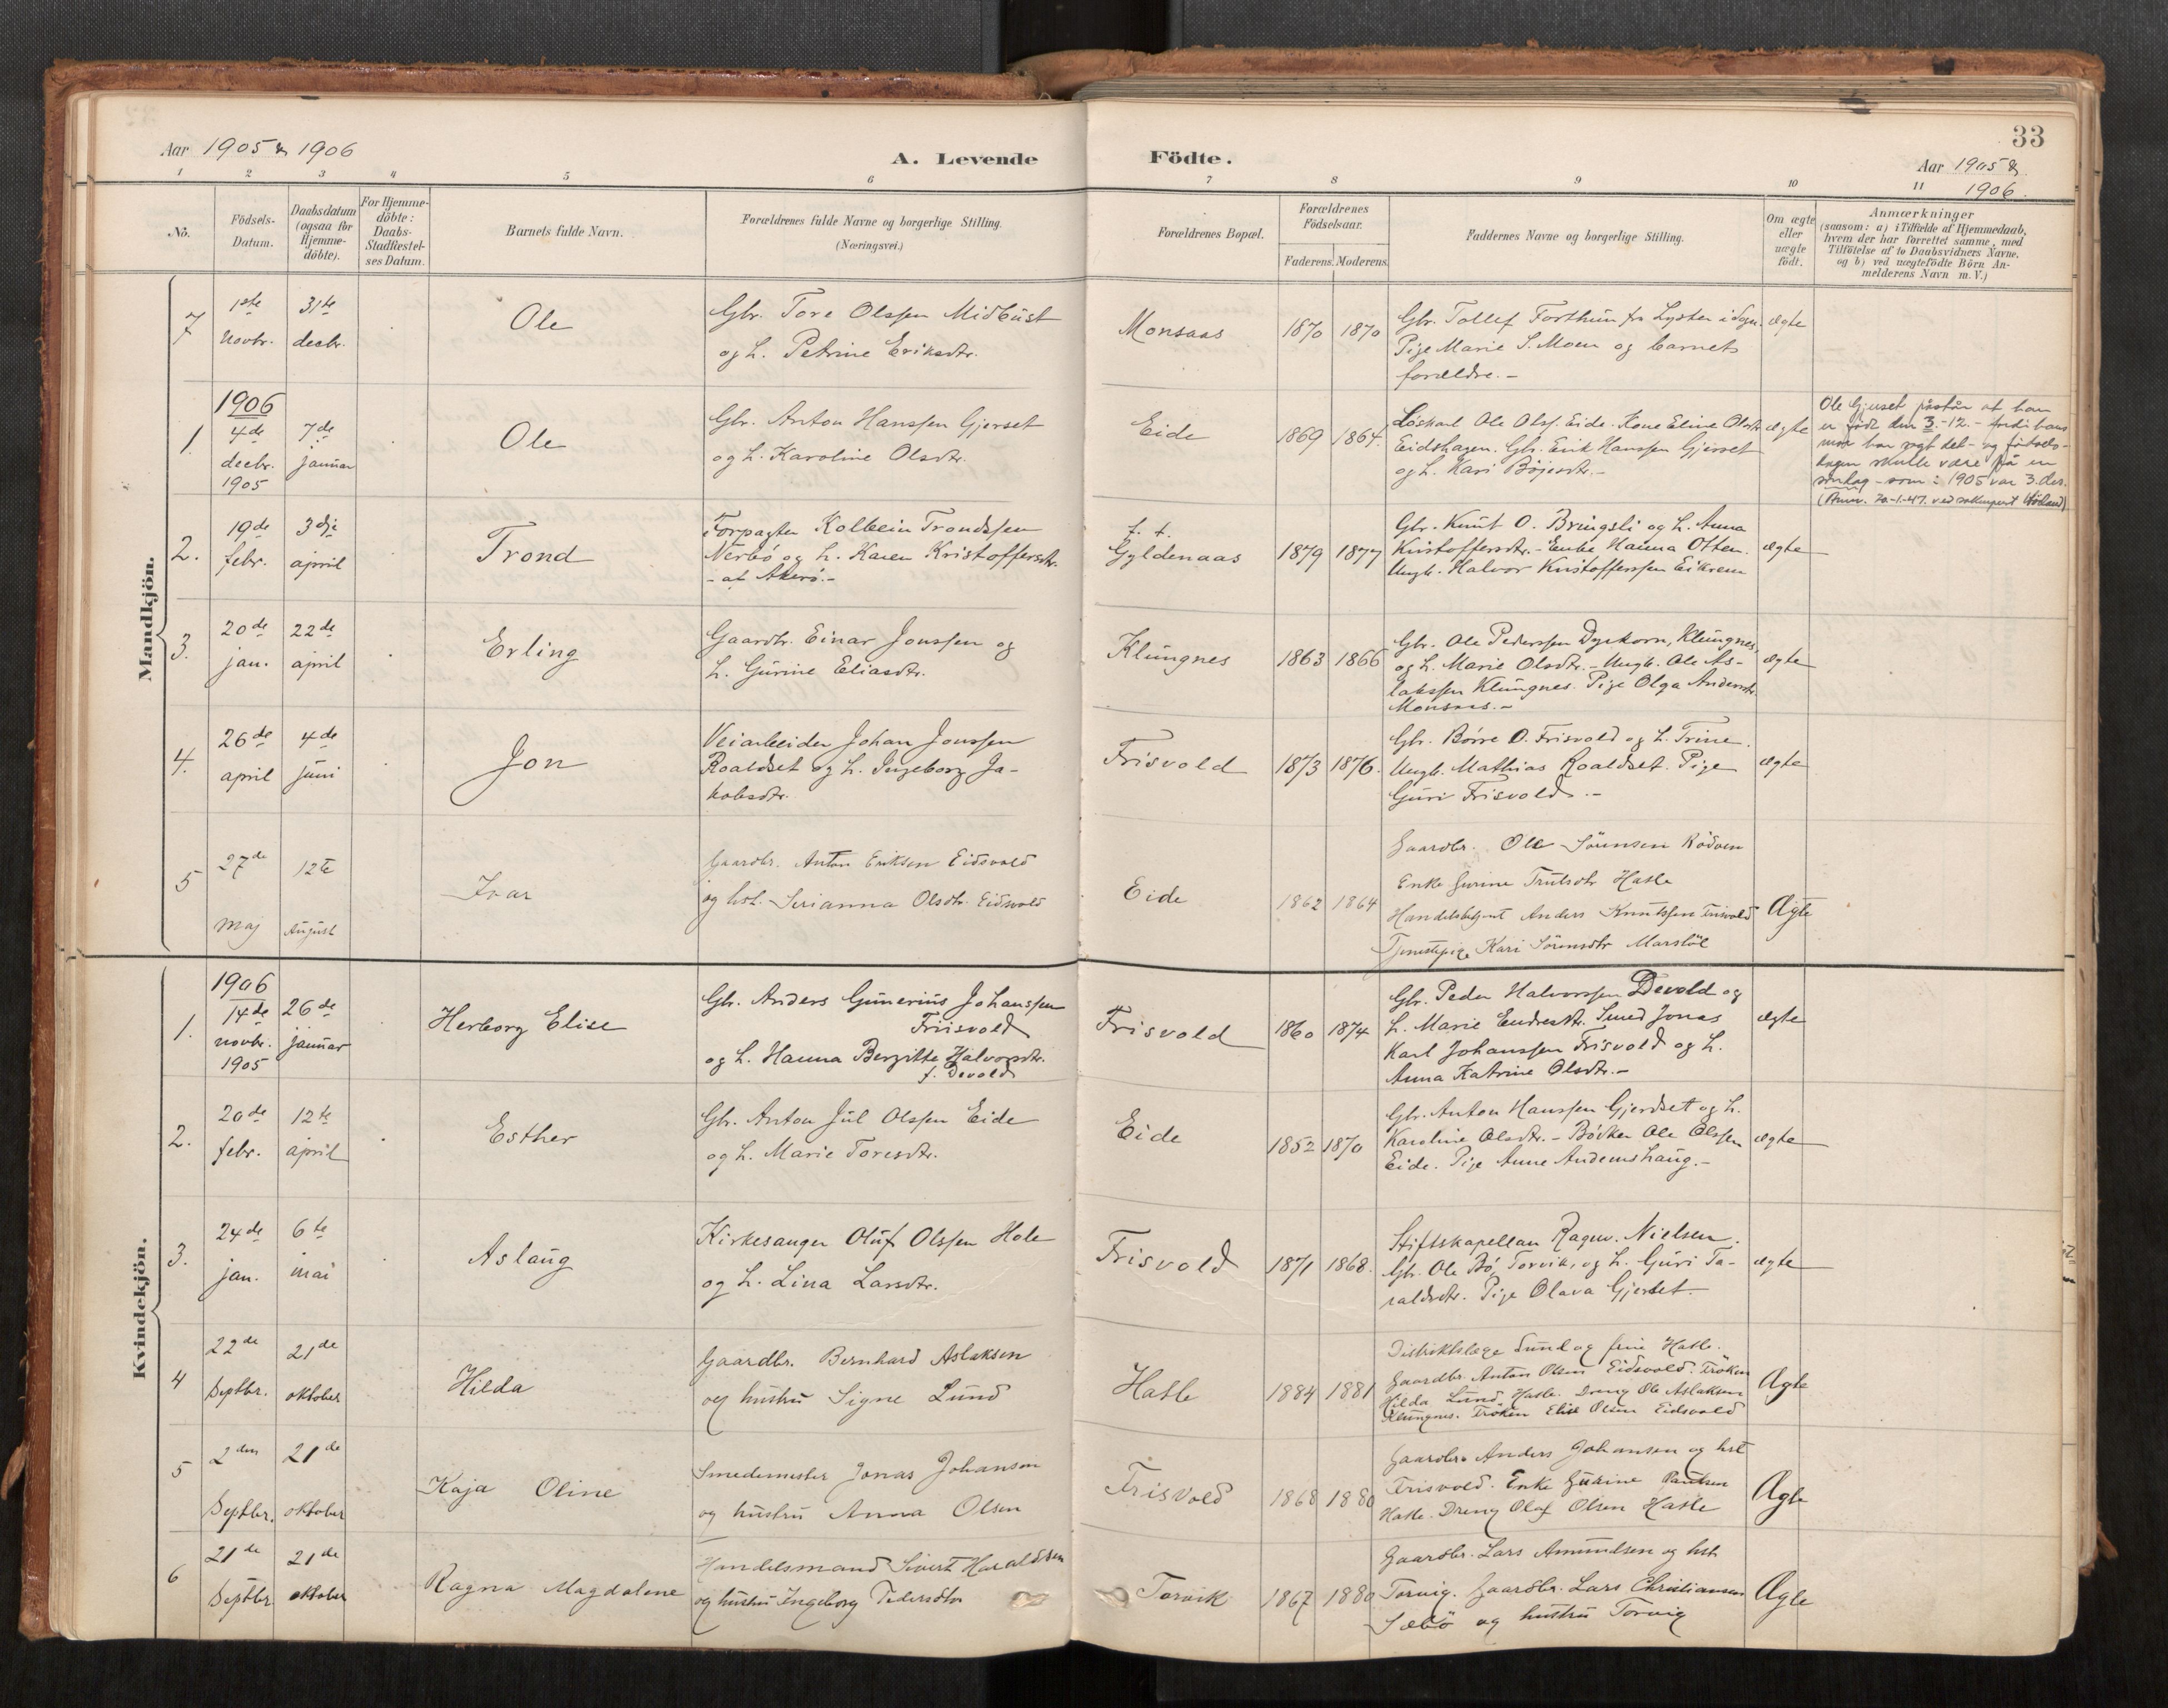 Aar 1905 & 1906
A. Levende
Födte.
33
Aar 1905 &
1906.
1 2 3 4 5 6 7 8 9 10 11
No.
Födsels-
Datum.
Daabsdatum
(ogsaa for
Hjemme-
döbte).
For Hjemme-
döbte:
Daabs-
Stadfæstel-
ses Datum.
Barnets fulde Navn.
Forældrenes fulde Navne og borgerlige Stilling.
(Næringsvei.)
Forældrenes Bopæl.
Forældrenes
Födselsaar.
Faderens. Moderens.
Faddernes Navne og borgerlige Stilling.
Om ægte
eller
uægte
födt.
Anmærkninger
(saasom: a) i Tilfælde af Hjemmedaab,
hvem der har forrettet samme, med
Tilföielse af to Daabsvidners Navne,
og b) ved uægtefödte Börn An-
melderens Navn m. V.)
Mandkjön.
7
1ste
novbr.
31te
decbr.
Ole
Gbr. Tore Olsen Midbust
og h. Petrine Eriksdtr.
Monsaas
1870 1870
Gbr. Tollef Forthun fra Lyster i Sogn.
Pige Marie S. Moen og barnets
forældre.-
ægte
1.
1906
4de
decbr.
1905
7de
januar
Ole
Gbr. Anton Hanssen Gjerset
og h. Karoline Olsdtr.
Eide
1869 1864.
Løskarl Ole Ols. Eide. Kone Eline Olsdtr.
Eidshagen. Gbr. Erik Hanssen Gjerset
og h. Kari Böjesdtr.-
ægte
Ole Gjerset påstår at han
er født den 3.-12. - fordi hans
mor har sagt det - og fødsels-
dagen skulle være på en
søndag - som i 1905 var 3. des.
2.
19de
febr.
3dje
april
Trond
Forpagter Kolbein Trondssen
Nerbö og h. Karen Kristoffersdtr.
- at Akerö.-
f. t.
Gyldenaas
1879 1877
Gbr. Knut O. Bringsli og h. Anna
Kristoffersdtr. - Enke Hanna Otten.
Ungk. Halvor Kristofferssen Eikrem
ægte
3.
20de
jan.
22de
april
Erling
Gaardbr. Einar Jonssen og
h. Gurine Eliasdtr.
Klungnes
1863 1866
Gbr. Ole Pederssen Dyrkorn, Klungnes,
og h. Marie Olsdtr. - Ungk. Ole As-
lakssen Klungnes. Pige Olga Andersdtr.
Monsaas.-
ægte
4.
26de
april
4de
juni
Jon
Veiarbeider Johan Jonssen
Roaldset og h. Ingeborg Ja-
kobsdtr.
Frisvold
1873 1876.
Gbr. Börre O. Frisvold og h. Trine.
Ungk. Mathias Roaldset. Pige
Guri Frisvold.-
ægte
5
27de
Maj
12te
August
Ivar
Gaardbr. Anton Eriksen Eidsvold
og hst. Serianna Olsdtr. Eidsvold
Eide
1862 1864
Gaardbr. Ole Sörensen Rödven
Enke Gurine Trulsdtr Hasle
Handelsbetjent Anders Knutssen Frisvold
Tjenestepige Kari Sörensdtr Marstöl
Ægte
Kvindekjön.
1.
1906
14de
novbr.
1905
26de
januar
Herborg Elise
Gbr. Anders Gunerius Johanssen
Frisvold
og h. Hanna Bergitte Halvorsdtr.
f. Devold
Frisvold
1860 1874
Gbr. Peder Halvorssen Devold og
h. Marie Endresdtr. Smed Jonas
Karl Johanssen Frisvold og h.
Anna Katrine Olsdtr.-
ægte
2.
20de
febr.
12te
april
Esther
Gbr. Anton Jul Olssen Eide
og h. Marie Toresdtr.
Eide
1852 1870
Gbr. Anton Hanssen Gjerdset og h.
Karoline Olsdtr. - Bödker Ole Olssen
Eide. Pige Anne Andemshaug.-
ægte
3.
24de
jan.
6te
mai
Aslaug
Kirkesanger Oluf Olssen Hole
og h. Lina Larsdtr.
Frisvold
1871 1868.
Stiftskapellan Ragnv. Nielsen.
Gbr. Ole Bö, Torvik, og h. Guri Ta-
raldsdtr. Pige Olava Gjerset.
ægte
4
22de
Septbr.
21de
oktober
Hilda
Gaardbr. Bernhard Aslaksen
og hustru Signe Lund
Hasle
1884 1881
Distriktslæge Lund og frue Hasle.
Gaardbr. Anton Olsen Eidsvold. Fröken
Hilda Lund, Hasle. Dreng Ole Aslaksen
Klungnes. Fröken Elise Olsen Eidsvold
Ægte
5
2den
Septbr.
21de
oktober
Kaja Oline
Smedemester Jonas Johansen
og hustru Anna Olsen
Frisvold
1868 1880
Gaardbr. Anders Johansen og hst
Frisvold. Enke Gurine
Hasle. Dreng Olaf Olsen Hasle
Ægte
6
21de
Septbr
21de
oktober
Ragna Magdalene
Handelsmand Sivert Haraldsen
og hustru Ingeborg Pedersdtr
Torvik
1867 1880
Gaardbr. Lars Amundsen og hst.
Torvig. Gaardbr. Lars Christiansen
Sæbö og hustru Torvig
Ægte